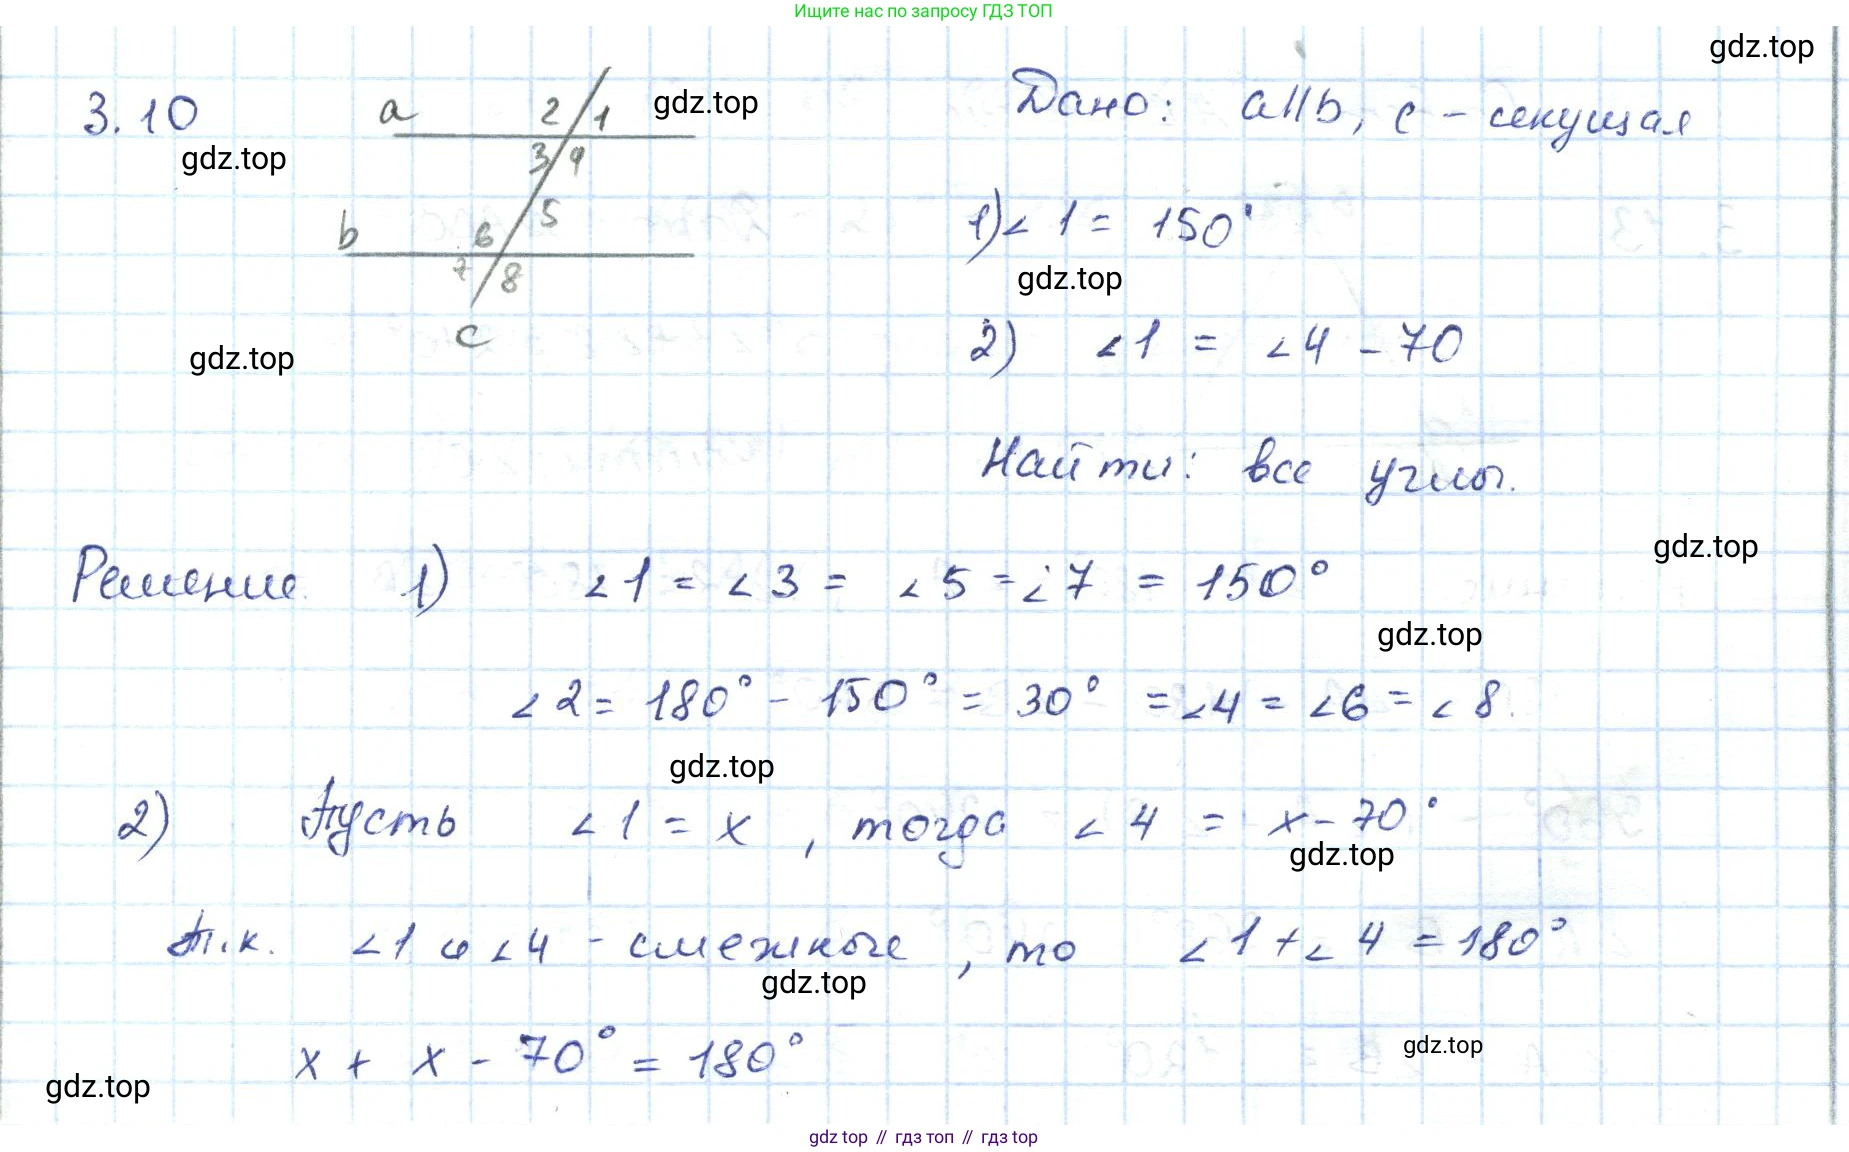 Ищите нас по запросу ГДЗ ТОП
gdz.top
3.10
a
2
1
gdz.top
Дано: a||b, c - секущая
gdz.top
3
4
1) ∠1 = 150°
b
6
5
7
8
gdz.top
c
2) ∠1 = ∠4 - 70
gdz.top
Найти: все углы.
gdz.top
Решение. 1) ∠1 = ∠3 = ∠5 = ∠7 = 150°
gdz.top
∠2 = 180° - 150° = 30° = ∠4 = ∠6 = ∠8.
gdz.top
2) Пусть ∠1 = x, тогда ∠4 = x - 70°
gdz.top
Т.к. ∠1 и ∠4 - смежные, то ∠1 + ∠4 = 180°
gdz.top
x + x - 70° = 180°
gdz.top
gdz.top
gdz top // гдз топ // гдз top